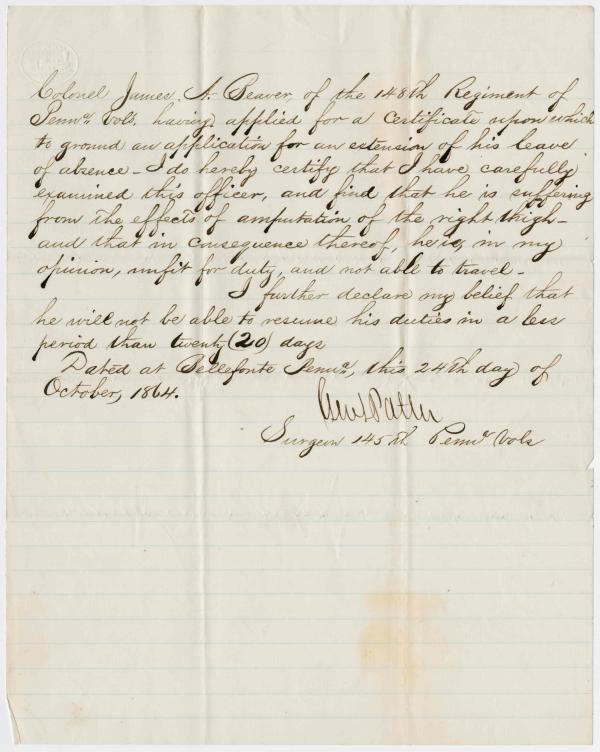 Colonel James. A. Beaver, of the 148th Regiment of
Penna. Vols. having applied for a Certificate upon which
to ground an application for an extension of his leave
of absence - I do hereby certify that I have carefully
examined this officer, and find that he is suffering
from the effects of amputation of the right thigh -
and that in consequence thereof, he is, in my
opinion, unfit for duty, and not able to travel -
I further declare my belief that
he will not be able to resume his duties in a less
period than twenty (20) days
Dated at Bellefonte Penna., this 24th day of
October, 1864.
Surgeon 145th Penna Vols